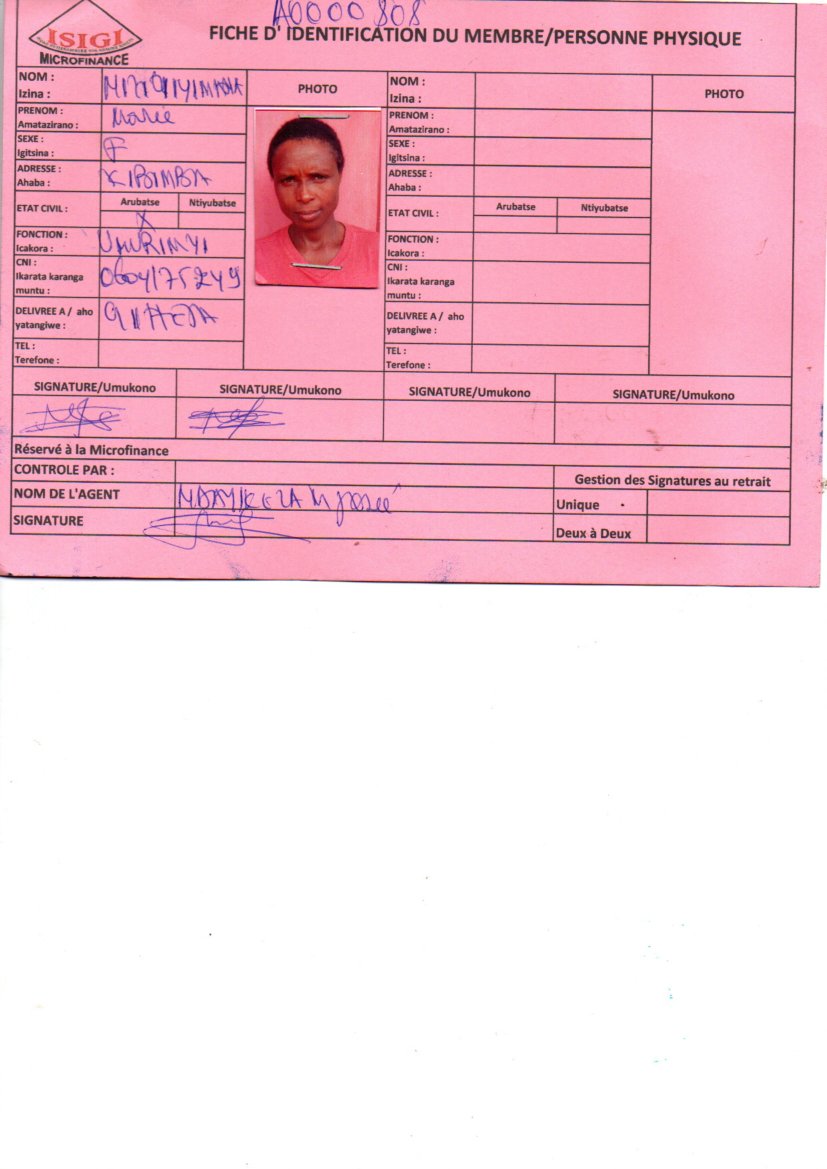 A0000808
ISIGI
MICROFINANCE
FICHE D' IDENTIFICATION DU MEMBRE/PERSONNE PHYSIQUE
NOM :
Izina :
PHOTO
PRENOM : Marie
Amatazirano :
SEXE : F
Igitsina :
ADRESSE : KIBIMBA
Ahaba :
ETAT CIVIL : Arubatse Ntiyubatse
X
FONCTION : UMURIMYI
Icakora :
CNI :
Ikarata karanga
muntu :
DELIVREE A / aho
yatangiwe :
TEL :
Terefone :
NOM :
Izina :
PHOTO
PRENOM :
Amatazirano :
SEXE :
Igitsina :
ADRESSE :
Ahaba :
ETAT CIVIL : Arubatse Ntiyubatse
FONCTION :
Icakora :
CNI :
Ikarata karanga
muntu :
DELIVREE A / aho
yatangiwe :
TEL :
Terefone :
SIGNATURE/Umukono SIGNATURE/Umukono SIGNATURE/Umukono SIGNATURE/Umukono
Réservé à la Microfinance
CONTROLE PAR :
Gestion des Signatures au retrait
NOM DE L'AGENT
Unique
SIGNATURE
Deux à Deux